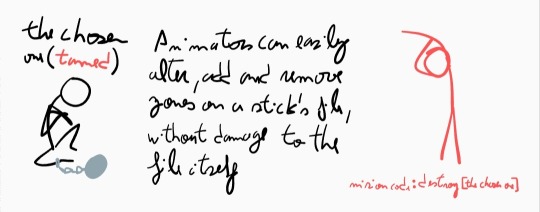 the chosen
one (tamed)
Animators can easily
alter, add and remove
zones on a stick's file,
without damage to the
file itself
mision code: destroy [the chosen one]